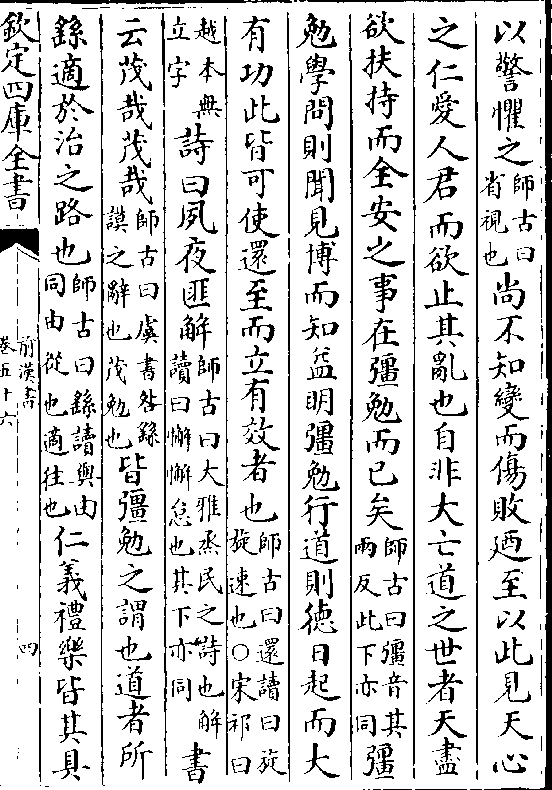 以警懼之師古曰省視也尚不知變而傷敗廼至以此見天心
之仁愛人君而欲止其亂也自非大亡道之世者天盡
欲扶持而全安之事在彊勉而已矣師古曰彊音其兩反此下亦同彊
勉學問則聞見博而知益明彊勉行道則德日起而大
有功此皆可使還至而立有效者也師古曰還讀曰旋旋速也○宋祁曰
越本無立字詩曰夙夜匪解師古曰大雅烝民之詩也解讀曰懈懈怠也其下亦同書
云茂哉茂哉師古曰虞書咎繇謨之辭也茂勉也皆彊勉之謂也道者所
繇適於治之路也師古曰繇讀與由同由從也適往也仁義禮樂皆其具
欽定四庫全書
前漢書
卷五十六
四